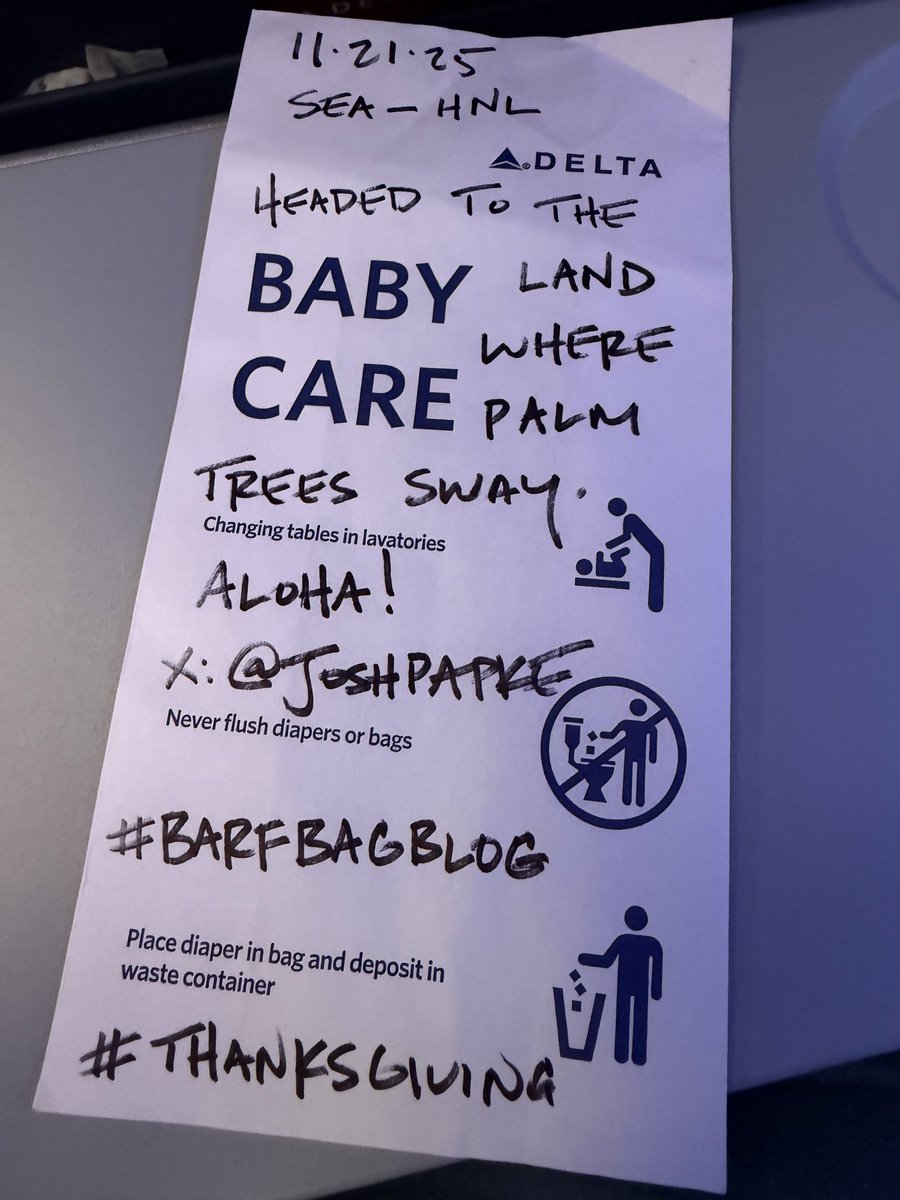 11.21.25
SEA – HNL
DELTA
HEADED TO THE
BABY LAND
WHERE
CARE PALM
TREES SWAY.
Changing tables in lavatories
ALOHA!
X: @JOSHPAPKE
Never flush diapers or bags
#BARFBAGBLOG
Place diaper in bag and deposit in
waste container
#THANKSGIVING